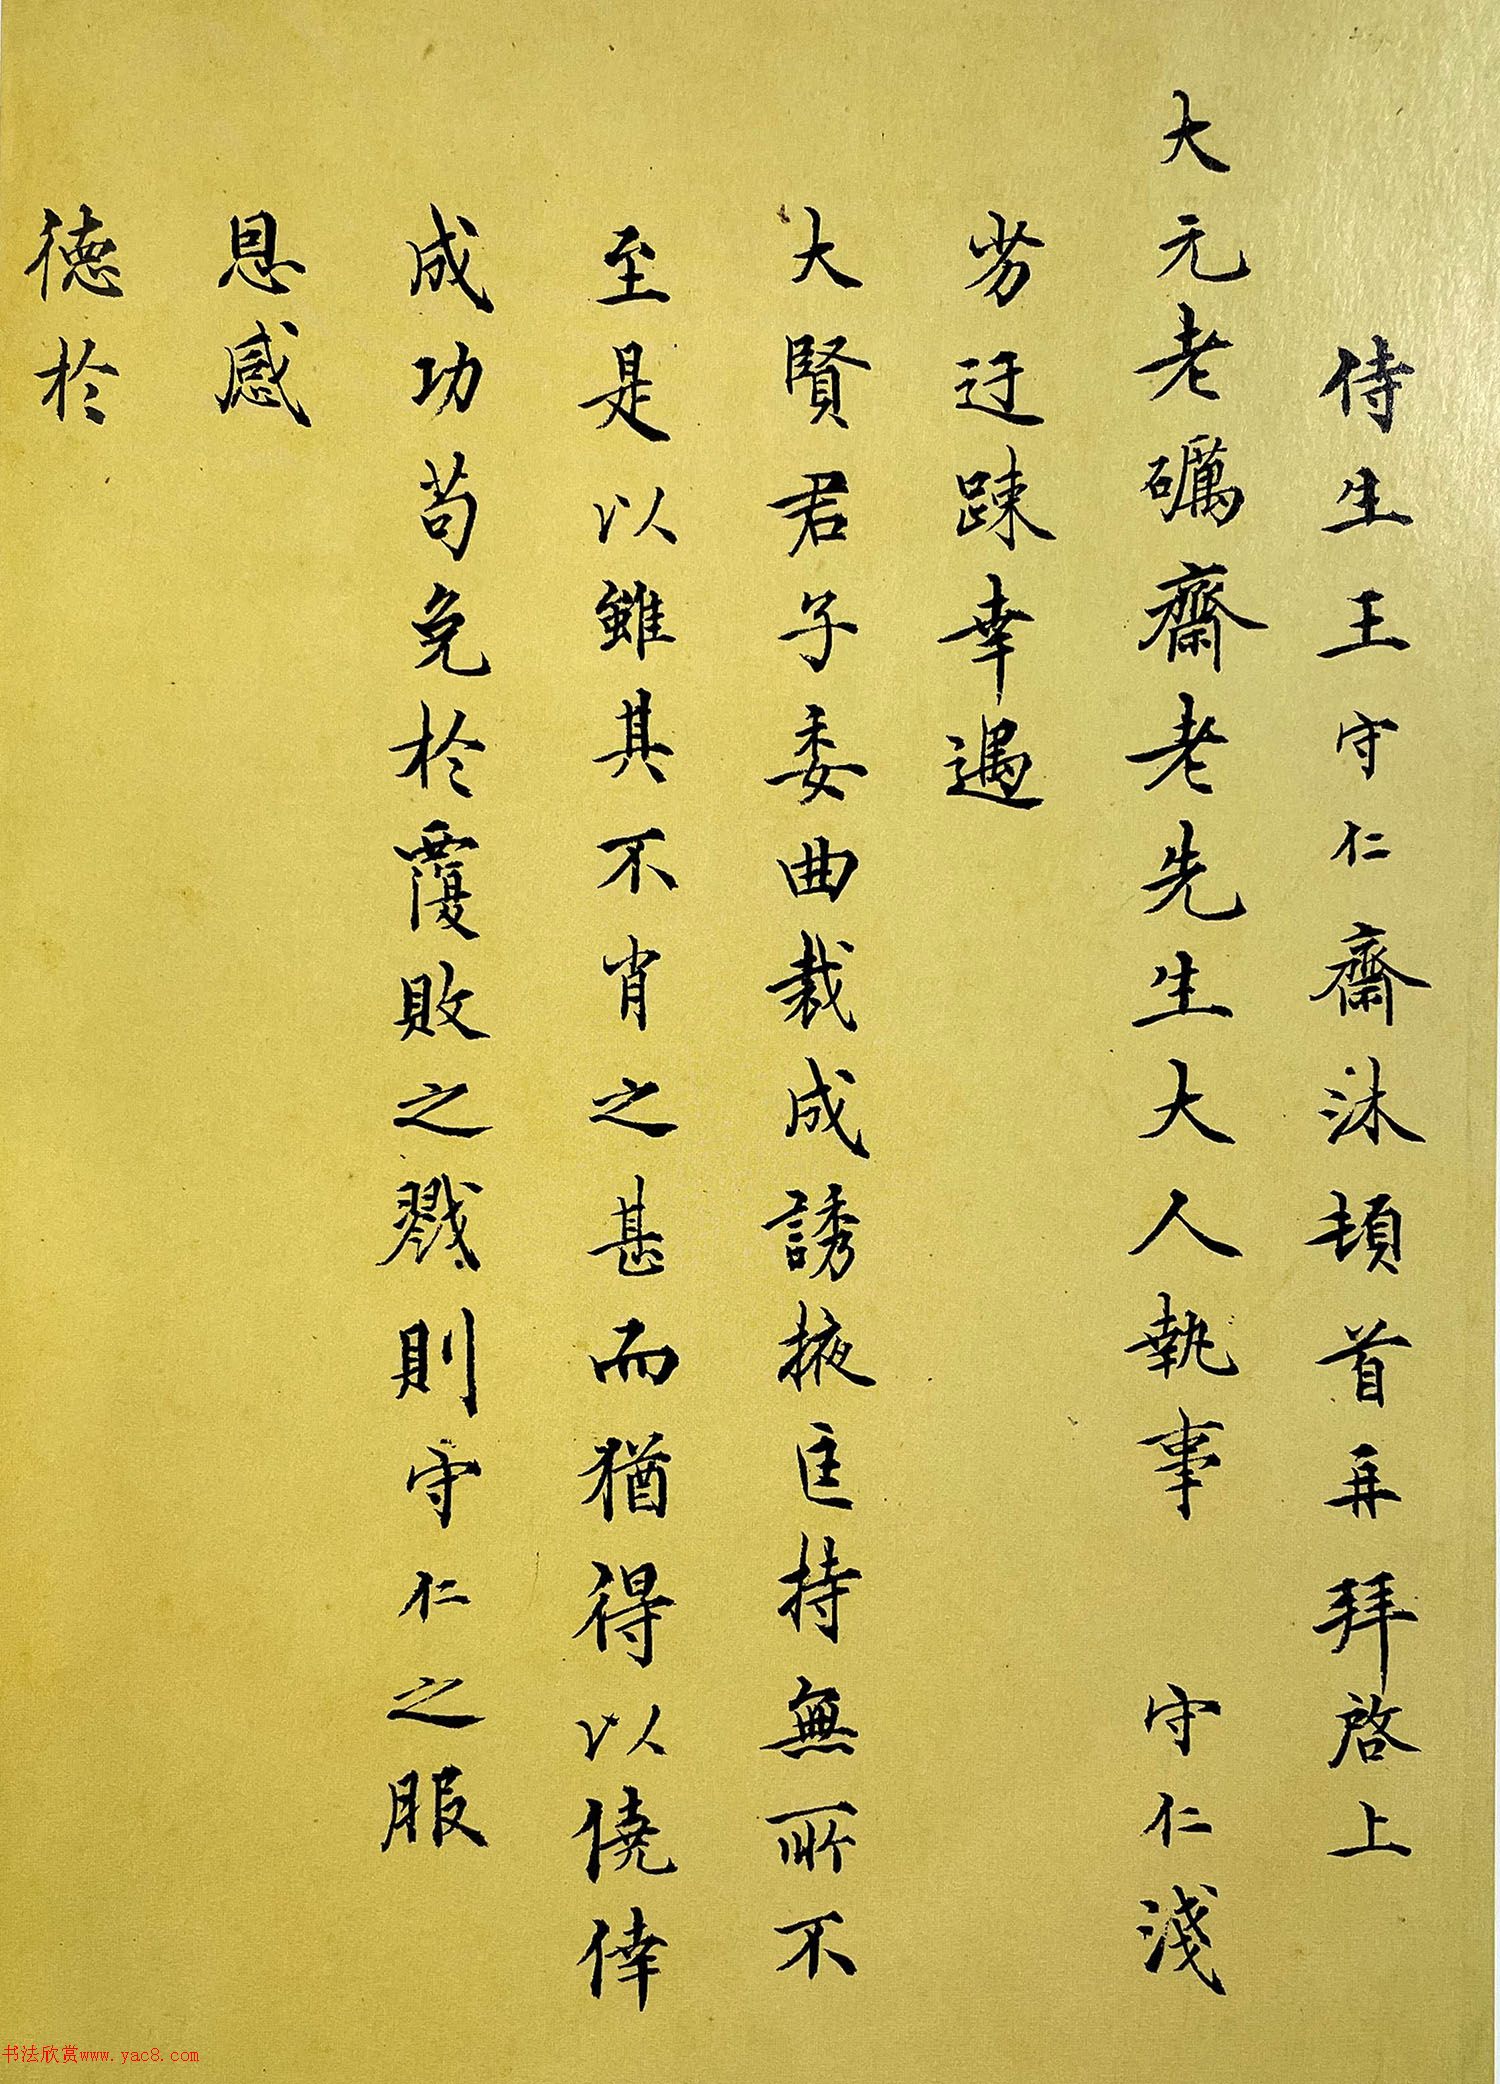 侍生王守仁齋沐頓首再拜啓上
大元老礪齋老先生大人執事　守仁淺
劣迂踈幸遇
大賢君子委曲裁成誘掖匡持無所不
至是以雖其不肖之甚而猶得以僥倖
成功苟免於覆敗之戮則守仁之服
恩感
德於
书法欣赏www.yac8.com